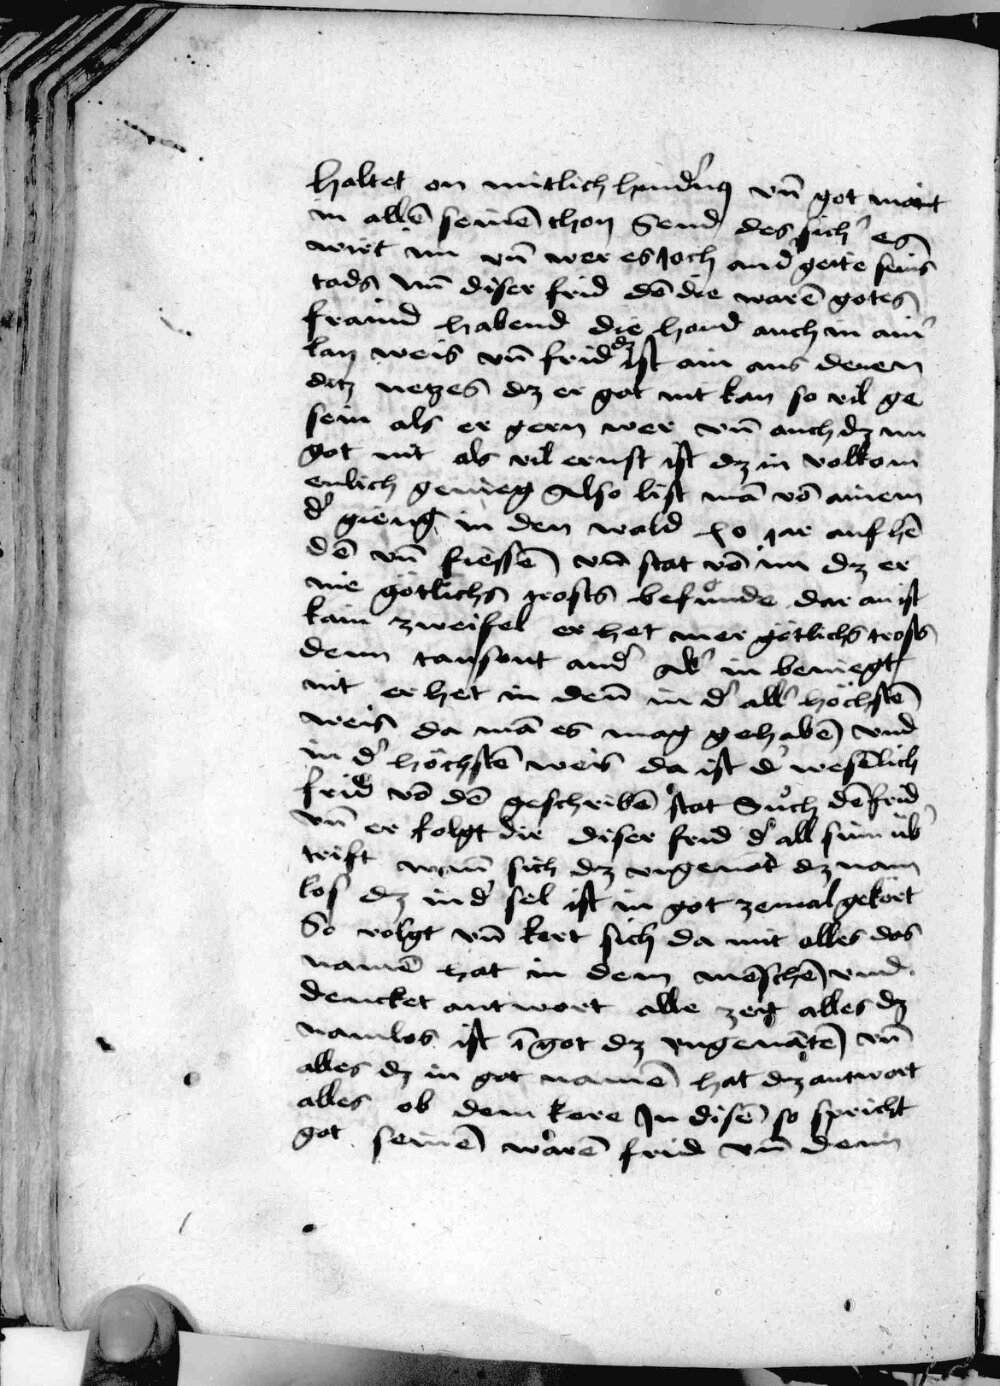 haltet on mitlich hindrūg vn̄ got maīt
in allē seinē thon Send des sich es
wirt im vn̄ wer es joch and geite seins
tods Vn̄ diser frid dē die warē gotes
fraind habend die hand auch in ain
lay weis vn̄ frid dz ist ain aus denen
ditz netzes dz er got nit kan so vil ge
sein als er gern wer vn̄ auch dz im
got nit als vil ernst ist dz in volkom
enlich genieg Also list mā vō ainem
d' gieng in den wald xo jar auf hē
dē vn̄ fiessē vn̄ stat vō im dz er
nie götlichs trosts befunde dar an ist
kain zweifel er het mer götlichs trosts
denn tausent and' Ab' in beniegt
nit er het in den̄ in d' all' höchstē
weis da mā es mag gehabē vnd
in d' höchstē weis da ist d' wesēlich
frid vō dē geschribē stat Such dē frid
vn̄ er folgt dir diser frid d' all sinn üb'
trift wann sich dz vngenāt dz nam
los dz in d' sel ist in got zemal gekört
So volgt vn̄ kert sich da mit alles das
namē hat in dem mēschē vnd
dencket antwort alle zeit alles dz
namlos ist ī got dz vngenātē vn̄
alles dz in got namē hat dz antwort
alles ob dem kere In disē so spricht
got seinē warē frid vn̄ denn